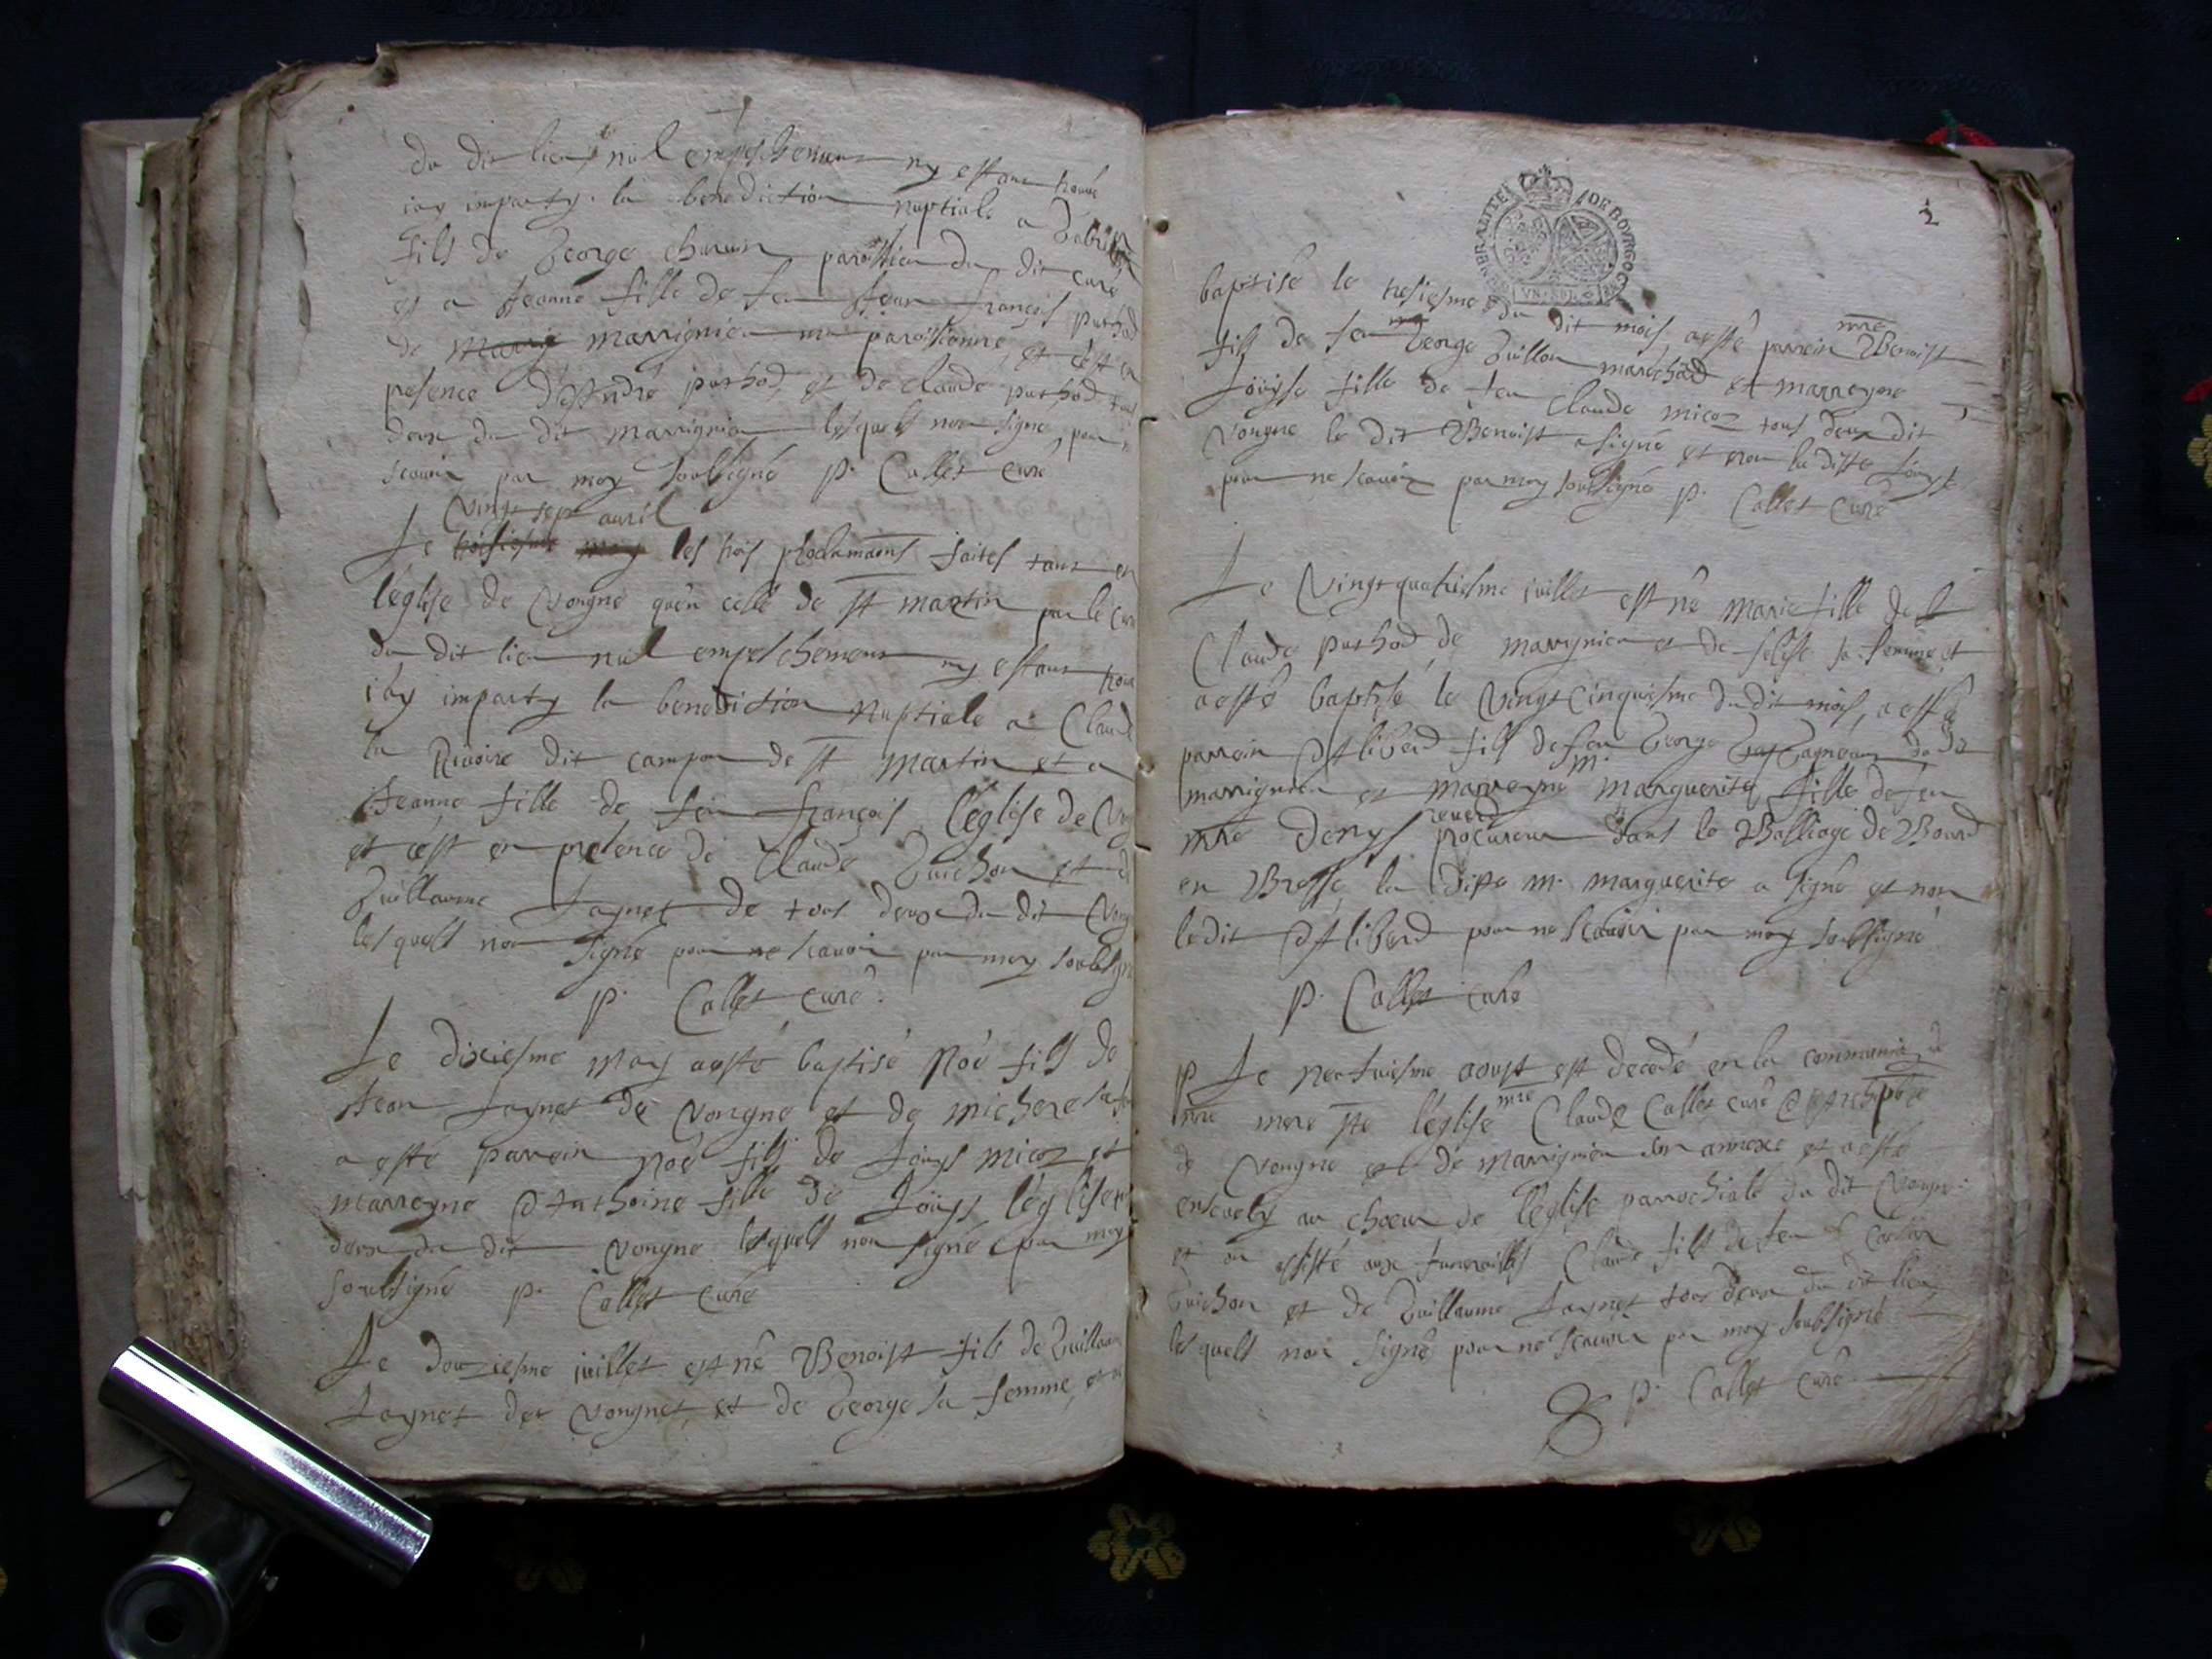 du dit lieu, nul empeschement ny estant trouvé
iay imparty la benediction nuptiale a
fils de George paroissien du dit curé
et a Jeanne fille de feu Jean françois puthod
de marrignieu ma paroissienne, et c'est en
presence d'Andre puthod, et de claude puthod tous
deux du dit marrignieu lesquels non signé pour
scavoir par moy soubsigné p. Collet curé
vingt sept avril
Le les trois proclamaons faites tant en
l'eglise de Vongne qu'en celle de st martin par le curé
du dit lieu nul empeschement ny estant trou
iay imparty la benediction nuptiale a Claude
la Rivoire dit campon de st martin et a
Jeanne fille de feu françois l'eglise de
et c'est en presence de Claude Guichon et de
Guillaume Jaynet de tous deux du dit
lesquels non signé pour ne scavoir par moy soubsigné
p. Collet curé.
Le dixiesme may aesté baptisé Noé fils de
Jean Jaynet de vongne et de
a esté parrein Noé fils de Louys micoz et
marreyne Anthoine fille de Louys l'eglise
deux du dit vongne lesquels non signé par moy
soubsigné p. Collet curé
Le douziesme juillet est né Benoist fils de Guillaume
Jaynet de vongne, et de George sa femme, et a
2
GENERALITE DE BOVRGOGNE
baptisé le tresiesme du dit mois, aesté parrein mre Benoist
fils de feu George Guillon marchãd et marreyne
Louyse fille de feu Claude micoz tous deux dit
Vongne le dit Benoist a signé et non la ditte Louyse
pour ne scavoir par moy soubsigné p. Collet curé
Le vingt quatriesme juillet est né marie fille de
Claude puthod de marrignieu et de sa femme et
aesté baptisé le vingt cinquiesme du dit mois, a esté
parrein fils de feu George du dit
marrignieu et marreyne m. marguerite fille de feu
mre Denys reverd procureur dans le Balliage de Bourd
en Bresse la ditte m. marguerite a signé et non
ledit pour ne scavoir par moy soubsigné
p. Collet curé
Le neufviesme aoust est decedé en la communion de
nre mere ste l'eglise mre Claude Collet curé Archipbre
de vongne et de marrignieu son annexe et aesté
ensevely au choeur de l'eglise parrochiale du dit Vongne
et on assisté aux funerailles Claude fils de feu
Guichon et de Guillaume Jaynet tous deux du dit lieu,
lesquels non signé pour ne scavoir par moy soubsigné
p. Collet curé